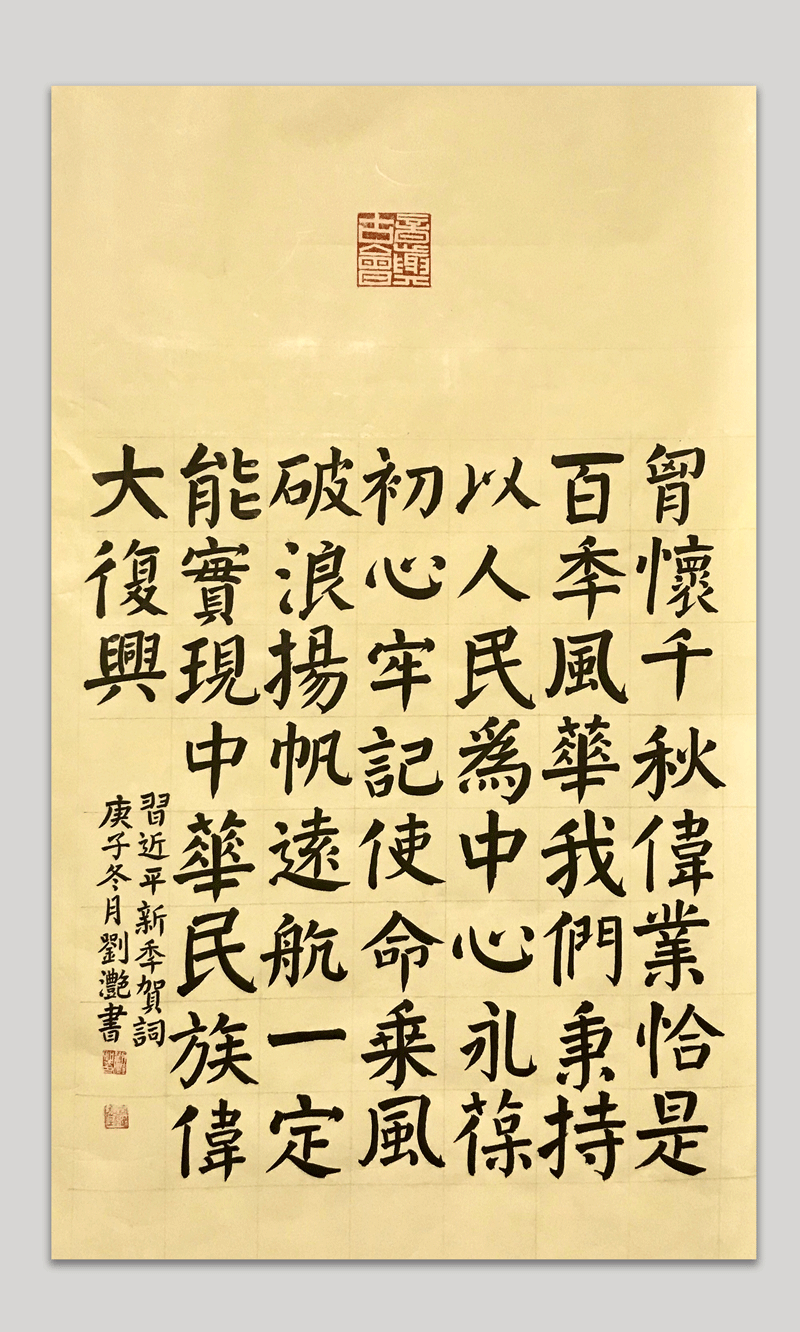 胷懷千秋偉業恰是
百秊風華我們秉持
以人民爲中心永葆
初心牢記使命乘風
破浪揚帆遠航一定
能實現中華民族偉
大復興
習近平新秊賀詞
庚子冬月劉灔書